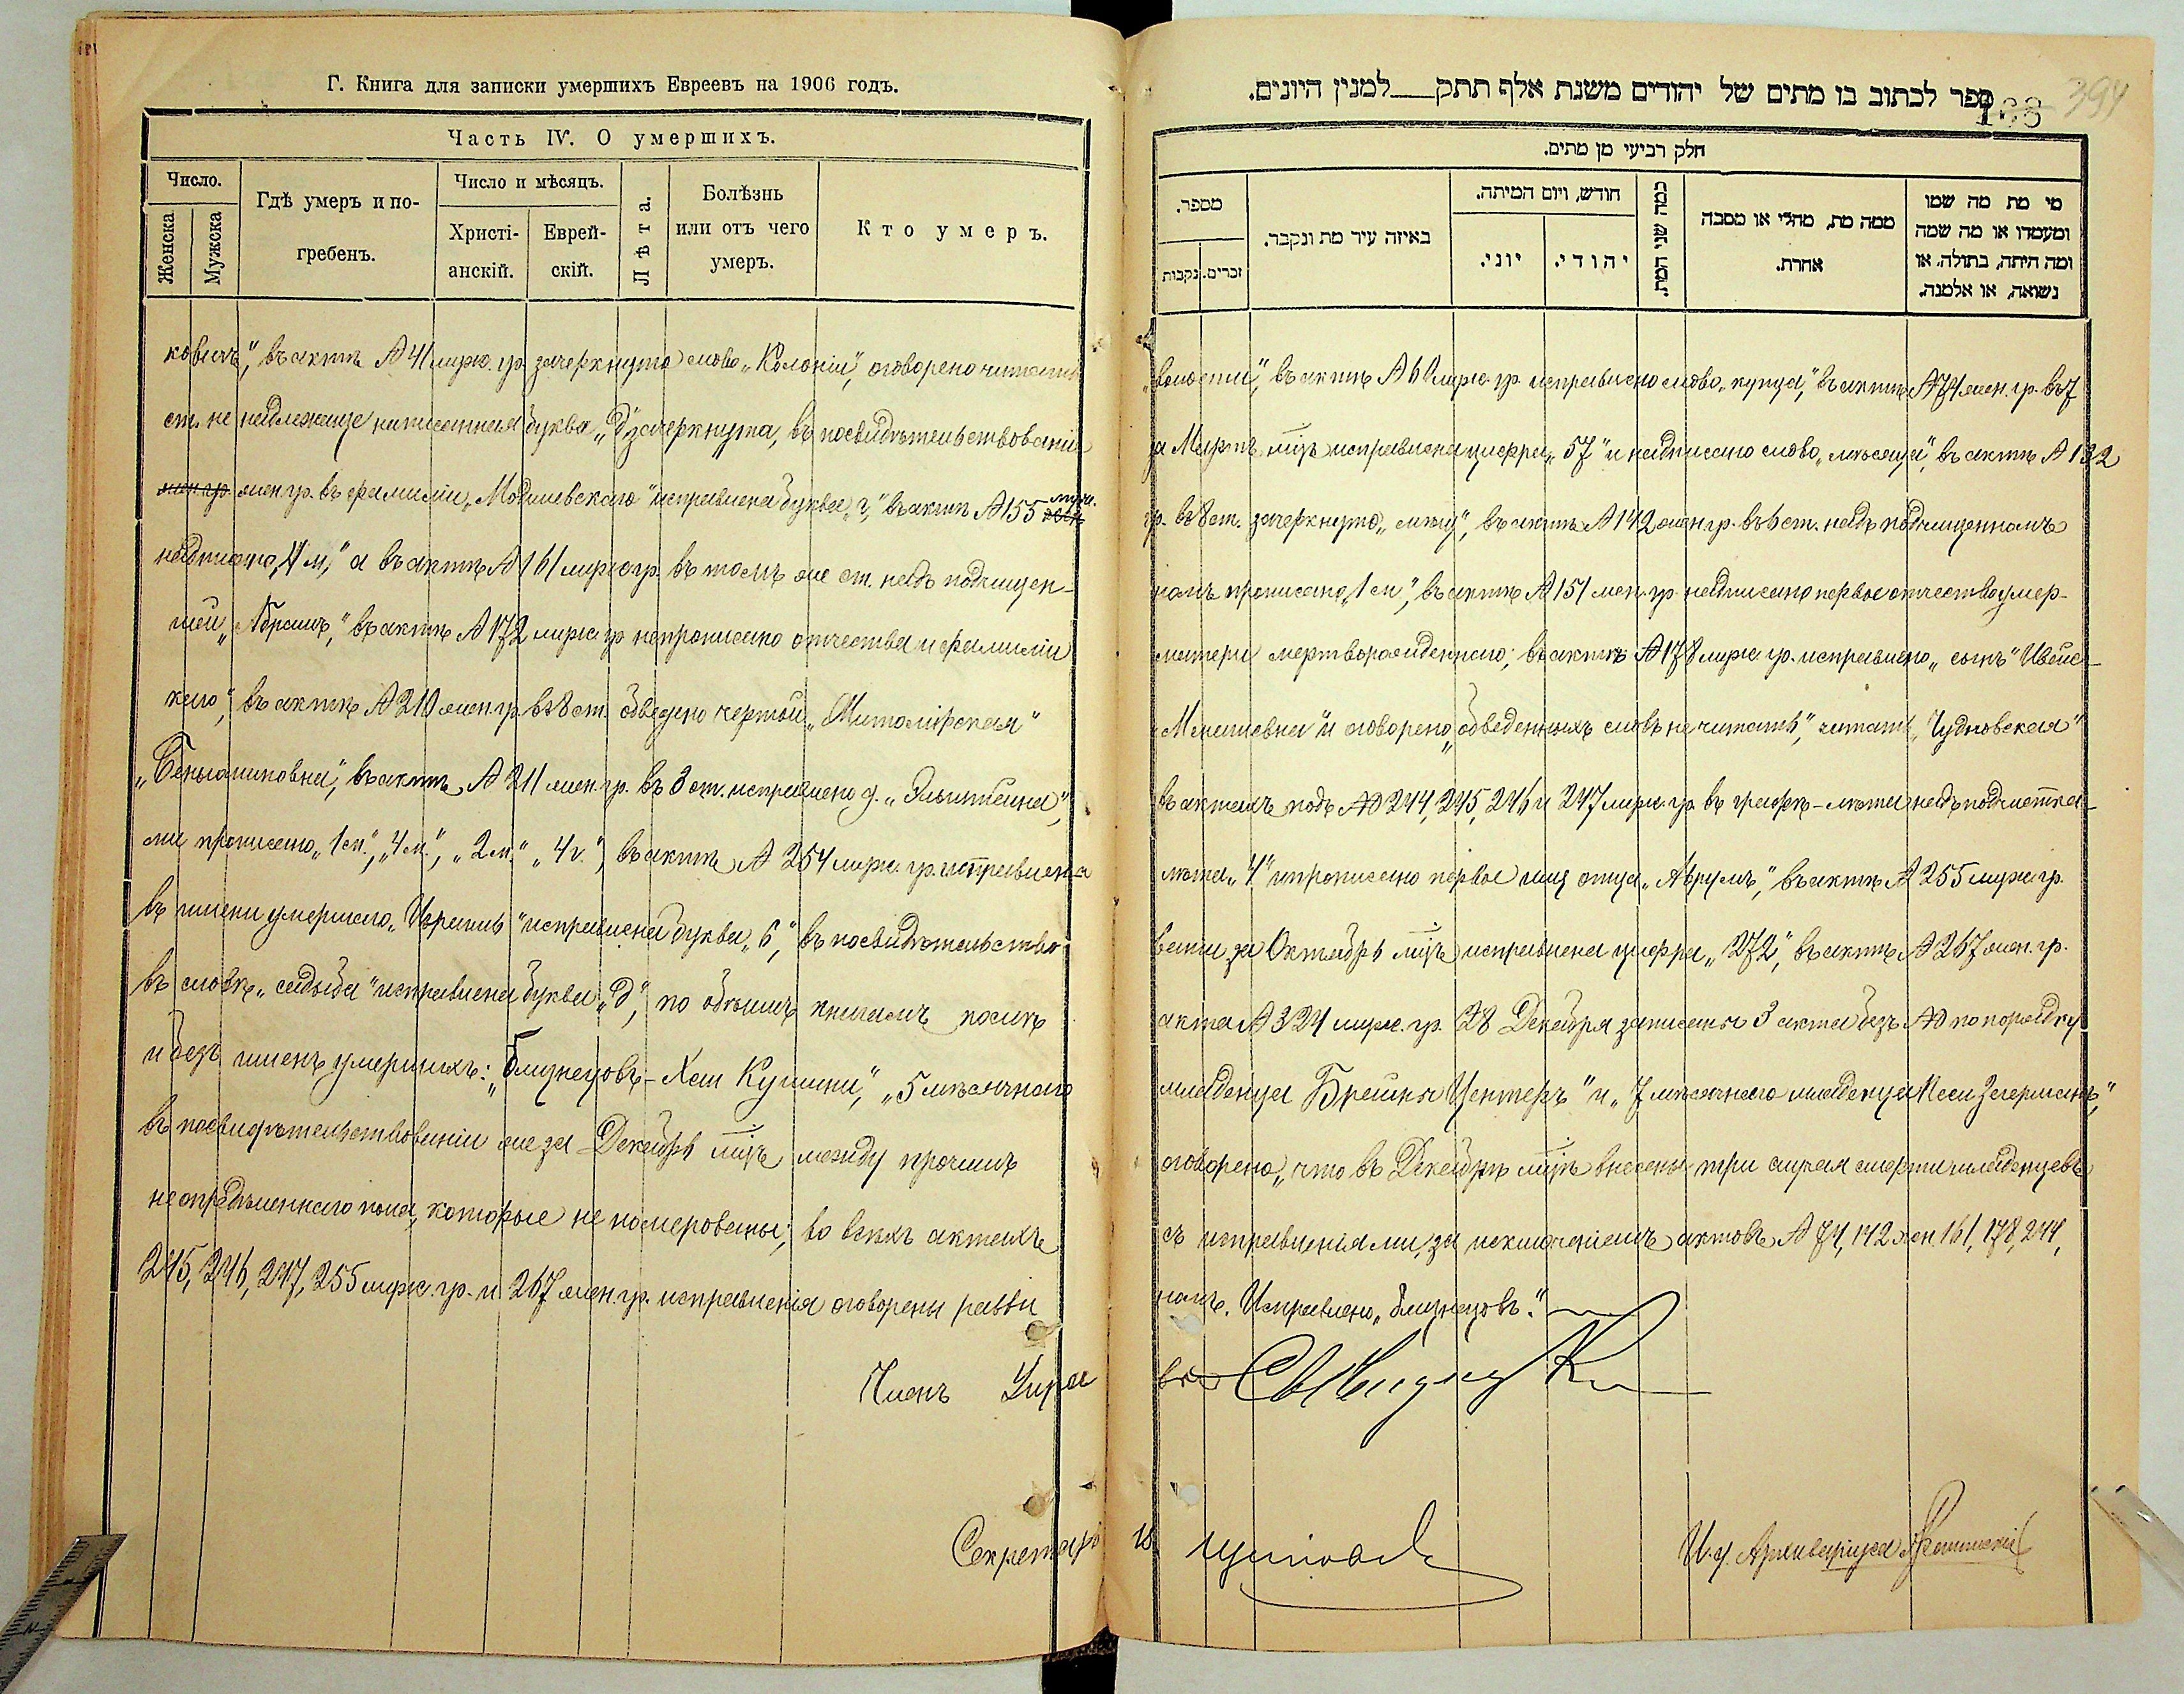 Г. Книга для записки умершихъ Евреевъ на 1906 годъ.
Часть IV. О умершихъ.
Число.
Женска
Мужска
Гдѣ умеръ и по-
гребенъ.
Число и мѣсяцъ.
Христі-
анскій.
Еврей-
скій.
Лѣта.
Болѣзнь
или отъ чего
умеръ.
Кто умеръ.
ספר לכתוב בו מתים של יהודים משנת אלף תתק למנין היונים.
163
394
חלק רביעי מן מתים.
מספר.
זכרים.
נקבות
באיזה עיר מת ונקבר.
חודש, ויום המיתה.
יוני.
יהודי.
כמה שני המת.
ממה מת, מחלי או מסבה
אחרת.
מי מת מה שמו
ומעמדו או מה שמה
ומה היתה, בתולה, או
נשואה, או אלמנה.
ковичъ", въ актѣ № 41 мужс. гр. зачеркнуто слово „Колоніи", оговорено читать „волости", въ актѣ № 60 мужс. гр. исправлено слово „купца", въ актѣ № 74 жен. гр. въ 7
ст. не надлежаще написанная буква „д" зачеркнута, въ посвидѣтельствованіи за Мартъ мѣц. исправлена цифра „57" и надписано слово „мѣсяца", въ актѣ № 132
жен. гр. жен. гр. въ фамиліи „Могилевскаго" исправлена буква „г", въ актѣ № 155 мужс. гр. въ 8 ст. зачеркнуто „лѣтъ", въ актѣ № 142 жен. гр. въ 6 ст. надъ подчищеннымъ
надписано „4 м", а въ актѣ № 161 мужс. гр. въ томъ же ст. надъ подчищен- нымъ прописано „1 м", въ актѣ № 151 жен. гр. надписано первое отчество умер-
шей „Абрамъ", въ актѣ № 172 мужс. гр. не прописано отчества и фамиліи матери мертворожденнаго; въ актѣ № 178 мужс. гр. исправлено „сынъ"
каго", въ актѣ № 210 жен. гр. въ 8 ст. обведено чертой „Житомірская" и оговорено „обведенныхъ словъ не читать", читать „Чудновская"
„Беньяминовна", въ актѣ № 211 жен. гр. въ 3 ст. исправлено въ актахъ подъ №№ 244, 245, 246 и 247 мужс. гр. въ графѣ - лѣта надъ подчистка-
ми прописано „1 м.", „4 м.", „2 м." „4 г.", въ актѣ № 254 мужс. гр. исправлена лѣта „4" и прописано первое имя отца „Аврумъ", въ актѣ № 255 мужс. гр.
въ имени умершаго „Израиль" исправлена буква „ь", въ посвидѣтельство- ваніи за Октябрь мѣц. исправлена цифра „272", въ актѣ № 267 жен. гр.
въ словѣ „свадьба" исправлена буква „д", по обѣимъ книгамъ послѣ акта № 324 мужс. гр. 28 Декабря записаны 3 акта безъ №№ по порядку
и безъ именъ умершихъ: „близнецовъ - Хаи Кушнир", „5 мѣсячнаго младенца Брейны Центеръ" и „7 мѣсячнаго младенца Песи Загерманъ",
въ посвидѣтельствованіи же за Декабрь мѣц. между прочимъ оговорено, „что въ Декабрѣ мѣц. внесены три случая смерти младенцевъ
неопредѣленнаго пола, которые не номерованы; во всѣхъ актахъ съ исправленіями, за исключеніемъ актовъ № 74, 142 жен. 161, 178, 244,
245, 246, 247, 255 мужс. гр. и 267 жен. гр. исправленія оговорены равви- номъ. Исправлено „близнецовъ".
Членъ Управы
Секретарь
И. д. Архиваріуса